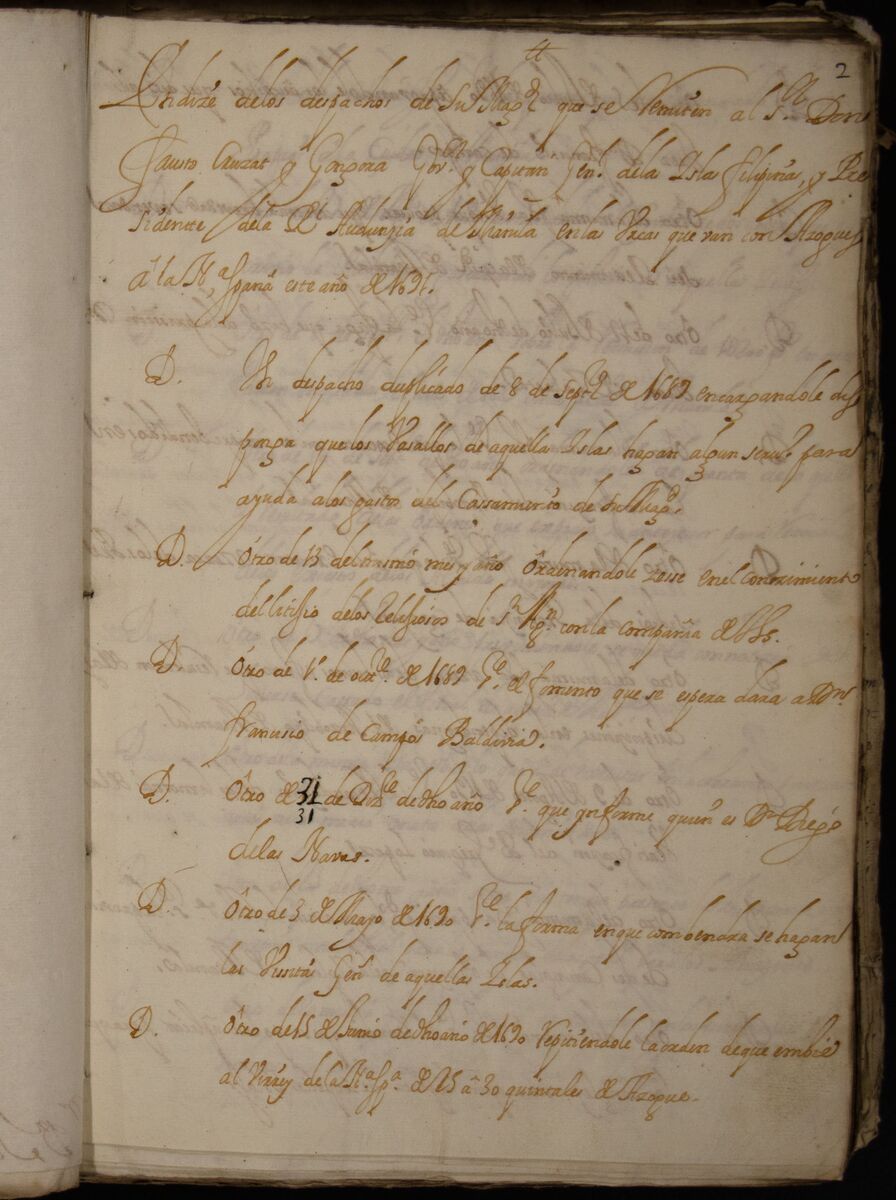 tt
2
Yndize delos despachos de Su Magd que se Remiten al Sr Don
fausto Cruzat y Gongora Govr y Capitan Genl delas Islas filipinas, y Pre
sidente dela Rl Audienzia de Manila en las Urcas que van con Azogues
a la Na españa este año de 1691.
D. Un despacho duplicado de 8 de Septe de 1689 encargandole dis
ponga que los Vasallos de aquellas Islas hagan algun servio para
ayuda alos gastos del Cassamiento de su Magd.
D. Otro de 13 del mismo mes y año Ordenandole zesse en el conozimiento
del litissio delos Relissiosos de Sn Agn. con la compañia de Jhs.
D. Otro de 1o. de octe. de 1689 Se. el fomento que se espera dara a Dn
francisco de Campos Baldivia.
D. Otro de 31 de Dize de dho año Se. que ynforme quien es Dn Diego
31
delas Navas.
D. Otro de 3 de Mayo de 1690 Se. la forma en que combendra se hagan
las Visitas Gens de aquellas Islas.
D. Otro de 15 de Junio de dho año de 1690 Repitiendole la orden de que embie
al Virrey de la Na. Spa. de 25 a 30 quintales de Azogue.